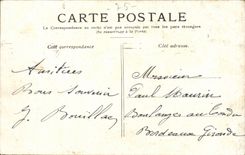 CARTE POSTALE
La Correspondance au recto n'est pas acceptée par tous les pays étrangers
(Se renseigner à la Poste)
Côté correspondance
Côté adresse.
Amitiés
Bons Souvenir
J. Bouillac
Monsieur
Paul Maurin
Boulanger
Bordeaux Gironde